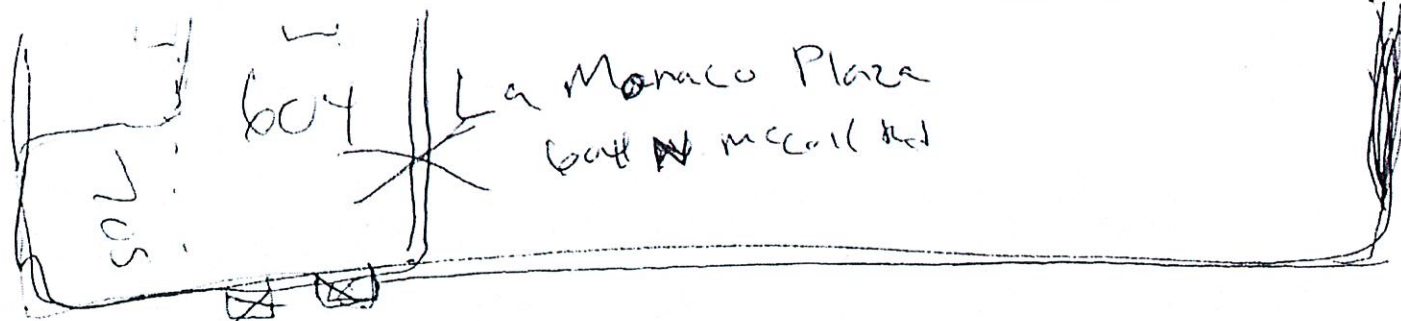 604
La Monaco Plaza
604 N McColl Rd